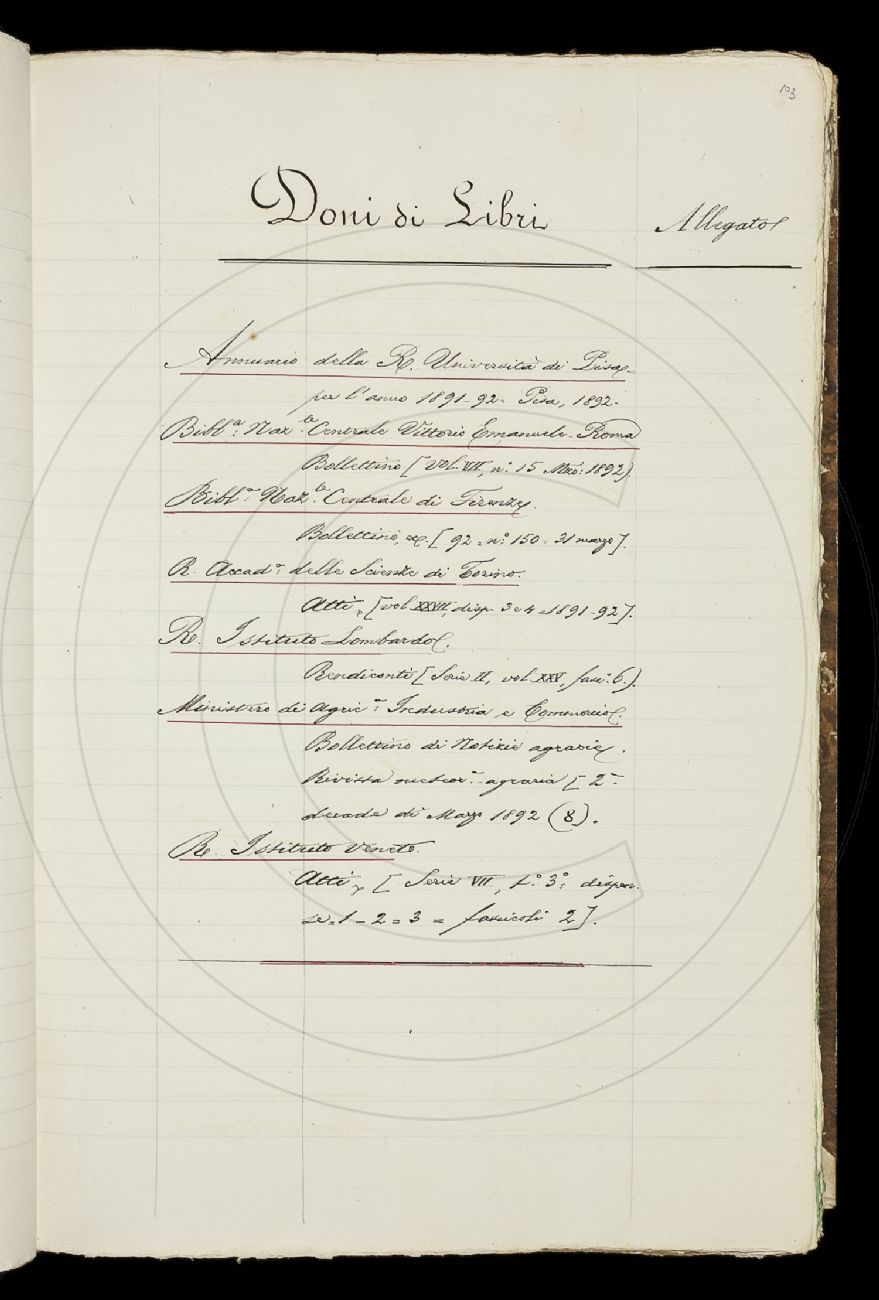 103
Doni di Libri
Allegato
Annuario della R. Università di Pisa
per l'anno 1891-92. Pisa, 1892.
Bibl.ª Naz.le Centrale Vittorio Emanuele. Roma
Bollettino [Vol. VII, n.° 15 Mzo: 1892].
Bibl.ª Naz.le Centrale di Firenze.
Bollettino, ec. [92 = n.° 150 = 31 marzo].
R. Accad.ª delle Scienze di Torino.
Atti, [vol. XXVII, disp. 3 e 4 = 1891-92].
R. Istituto Lombardo.
Rendiconti [Serie II, vol. XXV, fasc.° 6.].
Ministero di Agric.ª Industria e Commercio.
Bollettino di Notizie agrarie.
Rivista meteor.ª - agraria [2ª
decade di Marzo 1892 (8).
R. Istituto Veneto.
Atti, [Serie VII, t.° 3°: dispen-
se = 1 - 2 = 3 = fascicoli 2].